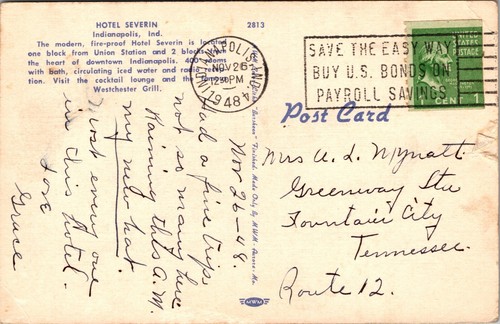 HOTEL SEVERIN
Indianapolis, Ind.
2813
The modern, fire-proof Hotel Severin is located
one block from Union Station and 2 blocks from
the heart of downtown Indianapolis. 400 rooms
with bath, circulating iced water and radio
tion. Visit the cocktail lounge and the
Westchester Grill.
INDIANAPOLIS, IND.
NOV 26
12 PM
1948
SAVE THE EASY WAY
BUY U.S. BONDS ON
PAYROLL SAVINGS
UNITED STATES
POSTAGE
1 CENT 1
Post Card
Nov 26-48.
Had a fine trip,
not so many here
Raining this A.M.
my new hat.
Most every one
in this Hotel.
Love
Grace
Mrs A. L. Mynatt
Greenway Sta
Fountain City
Tennessee.
Route 12.
MWM